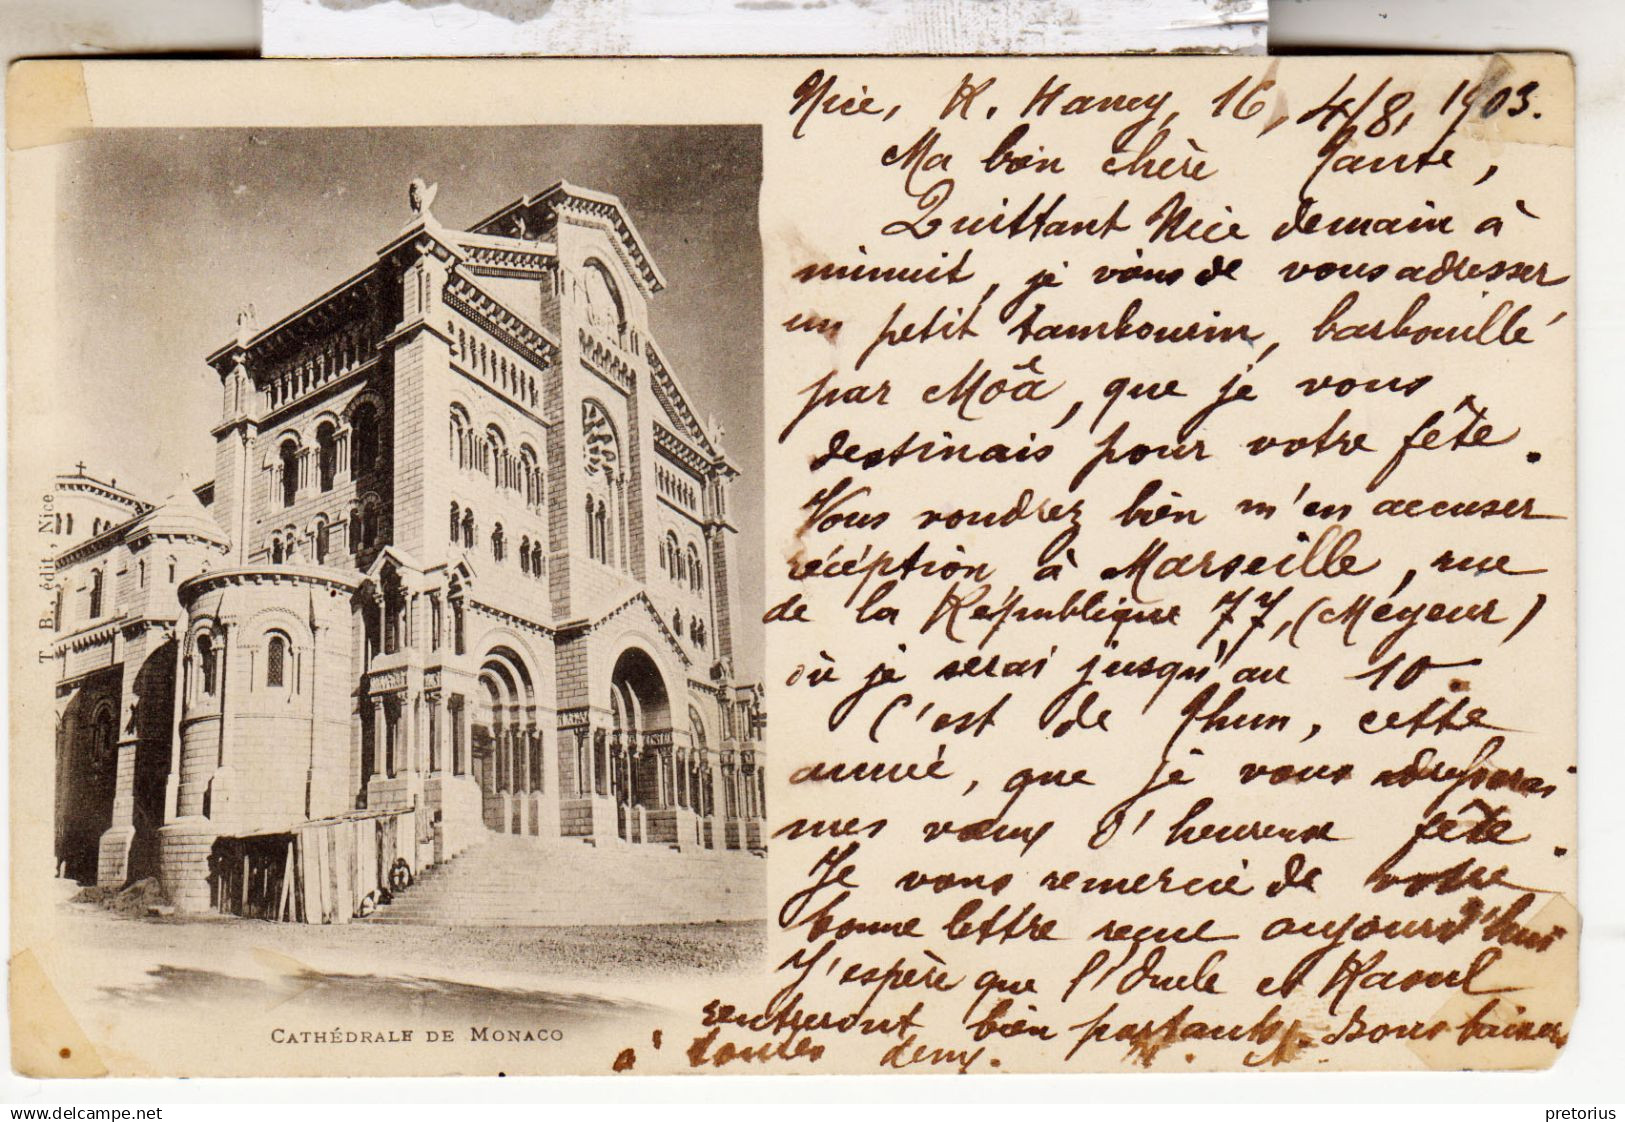 T. B., édit., Nice
CATHÉDRALE DE MONACO
Nice, R. Hancy, 16, 4/8, 1903.
Ma bien chère Tante,
Quittant Nice demain à
minuit, je viens de vous adresser
un petit tambourin, barbouillé
par Môâ, que je vous
destinais pour votre fête.
Vous voudrez bien m'en accuser
réception, à Marseille, rue
de la République 77, (Méyeur)
où je serai jusqu'au 10.
C'est de Thun, cette
année, que je vous adresserai
mes vœux d'heureuse fête.
Je vous remercie de votre
bonne lettre reçue aujourd'hui
J'espère que l'Oncle et Raoul
rentreront bien portants. Bons baisers
à toutes deux.
pretorius